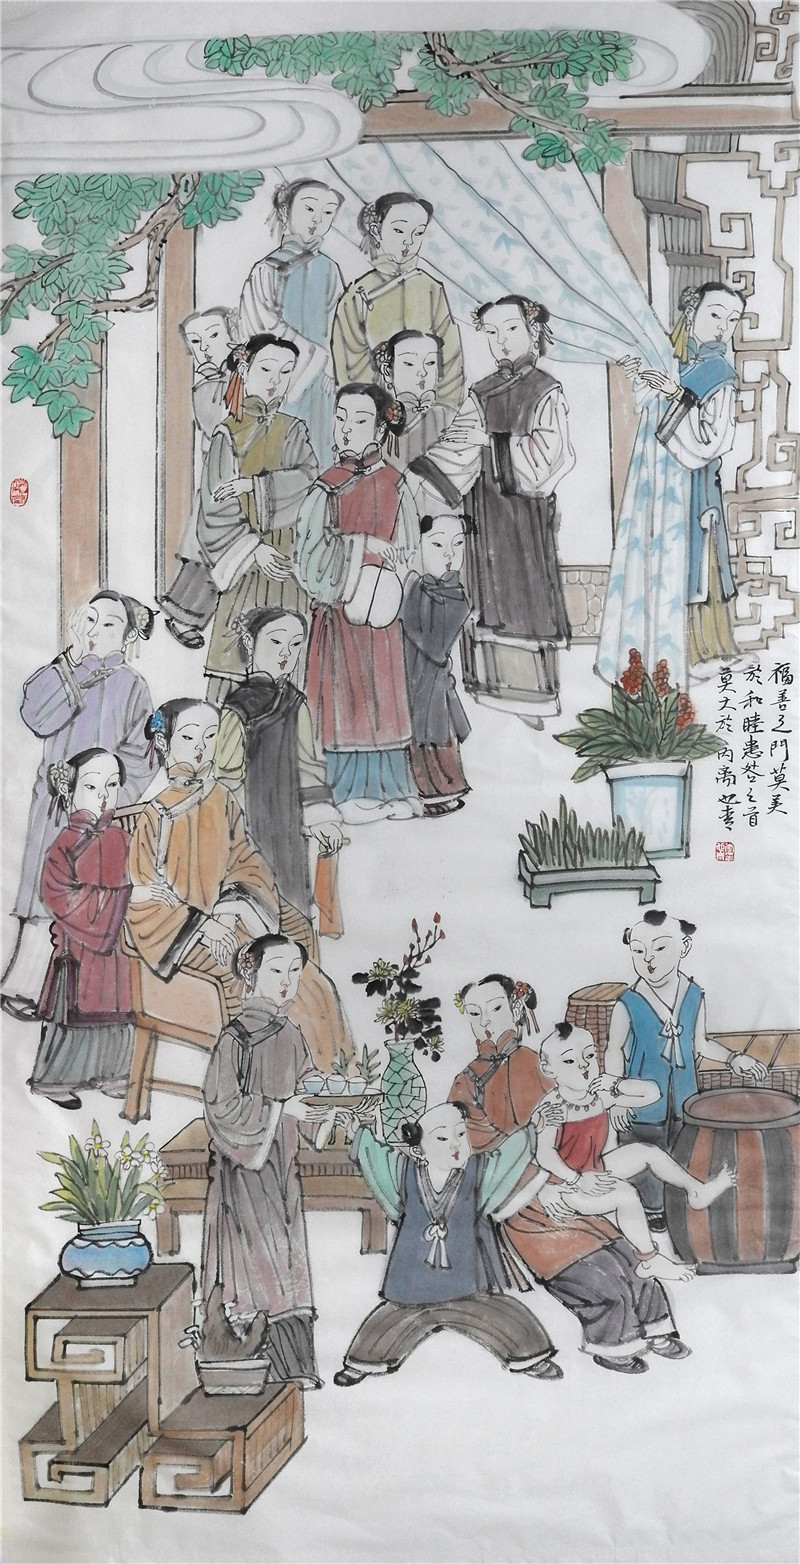 福善之门莫美
於和睦患咎之首
莫大於内离